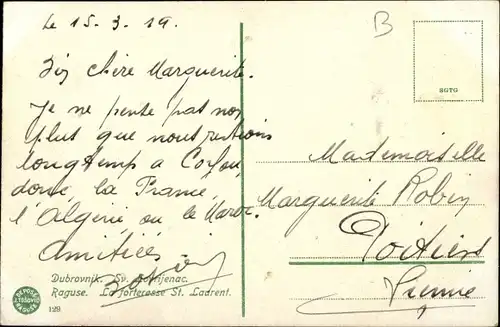 Le 15.3.19.
B
Bien chère Marguerite.
Je ne pense pas non
plus que nous restions
longtemp a Corfou
donc la France,
l'Algerie ou le Maroc.
Amitiées
Mademoiselle
Marguerite Robin
Poitiers
Vienne
SGTG
Dubrovnik. Sv. Lovrijenac.
Raguse. La forteresse St. Laurent.
DEPOSÉ
J. TOŠOVIĆ
RAGUSE
129